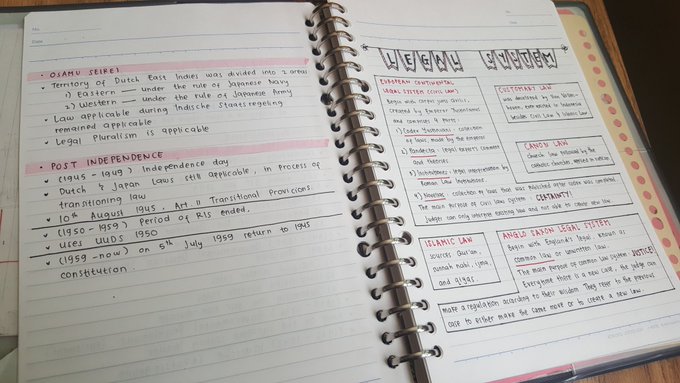 No.
Date.
• OSAMU SEIREI
• Territory of Dutch East Indies was divided into 2 areas
1) Eastern — under the rule of Japanese Navy
2) Western — under the rule of Japanese Army
• Law applicable during Indische Staatsregeling
remained applicable
• Legal Pluralism is applicable
• POST INDEPENDENCE
• (1945 - 1949) Independence day
• Dutch & Japan Laws still applicable, in process of
transitioning law
• 10th August 1945, Art II Transitional Provisions
• (1950 - 1959) Period of RIS ended.
• Uses UUDS 1950
• (1959 - now) on 5th July 1959 return to 1945
constitution.
No.
Date.
LEGAL SYSTEM
EUROPEAN CONTINENTAL
LEGAL SYSTEM (CIVIL LAW)
Begin with corpus juris civilis,
created by Emperor Justinianus
and comprises 4 parts :
1) Codex Justinianus : collection
of laws made by the emperor
2) Pandecta : legal experts comment
and theories
3) Institutiones : legal interpretation by
Roman Law Institutions.
4) Novellas : collection of laws that was published after codex was completed
The main purpose of civil law system : CERTAINTY!
Judger can only interpret existing law and not able to create new law.
CUSTOMARY LAW
was developed by Van Vollen-
hoven, even existed in Indonesia
besides Civil Law & Islamic Law
CANON LAW
church law authorized by the
catholic churches, applied in vatican
ISLAMIC LAW
sources Quran,
sunnah nabi, ijma,
and qiyas.
ANGLO SAXON LEGAL SYSTEM
Begin with England's legal known as
common law or unwritten law.
The main purpose of common law system : JUSTICE!
Everytime there is a new case, the judge can
make a regulation according to their wisdom They refer to the previous
case to either make the same move or to create a new law.